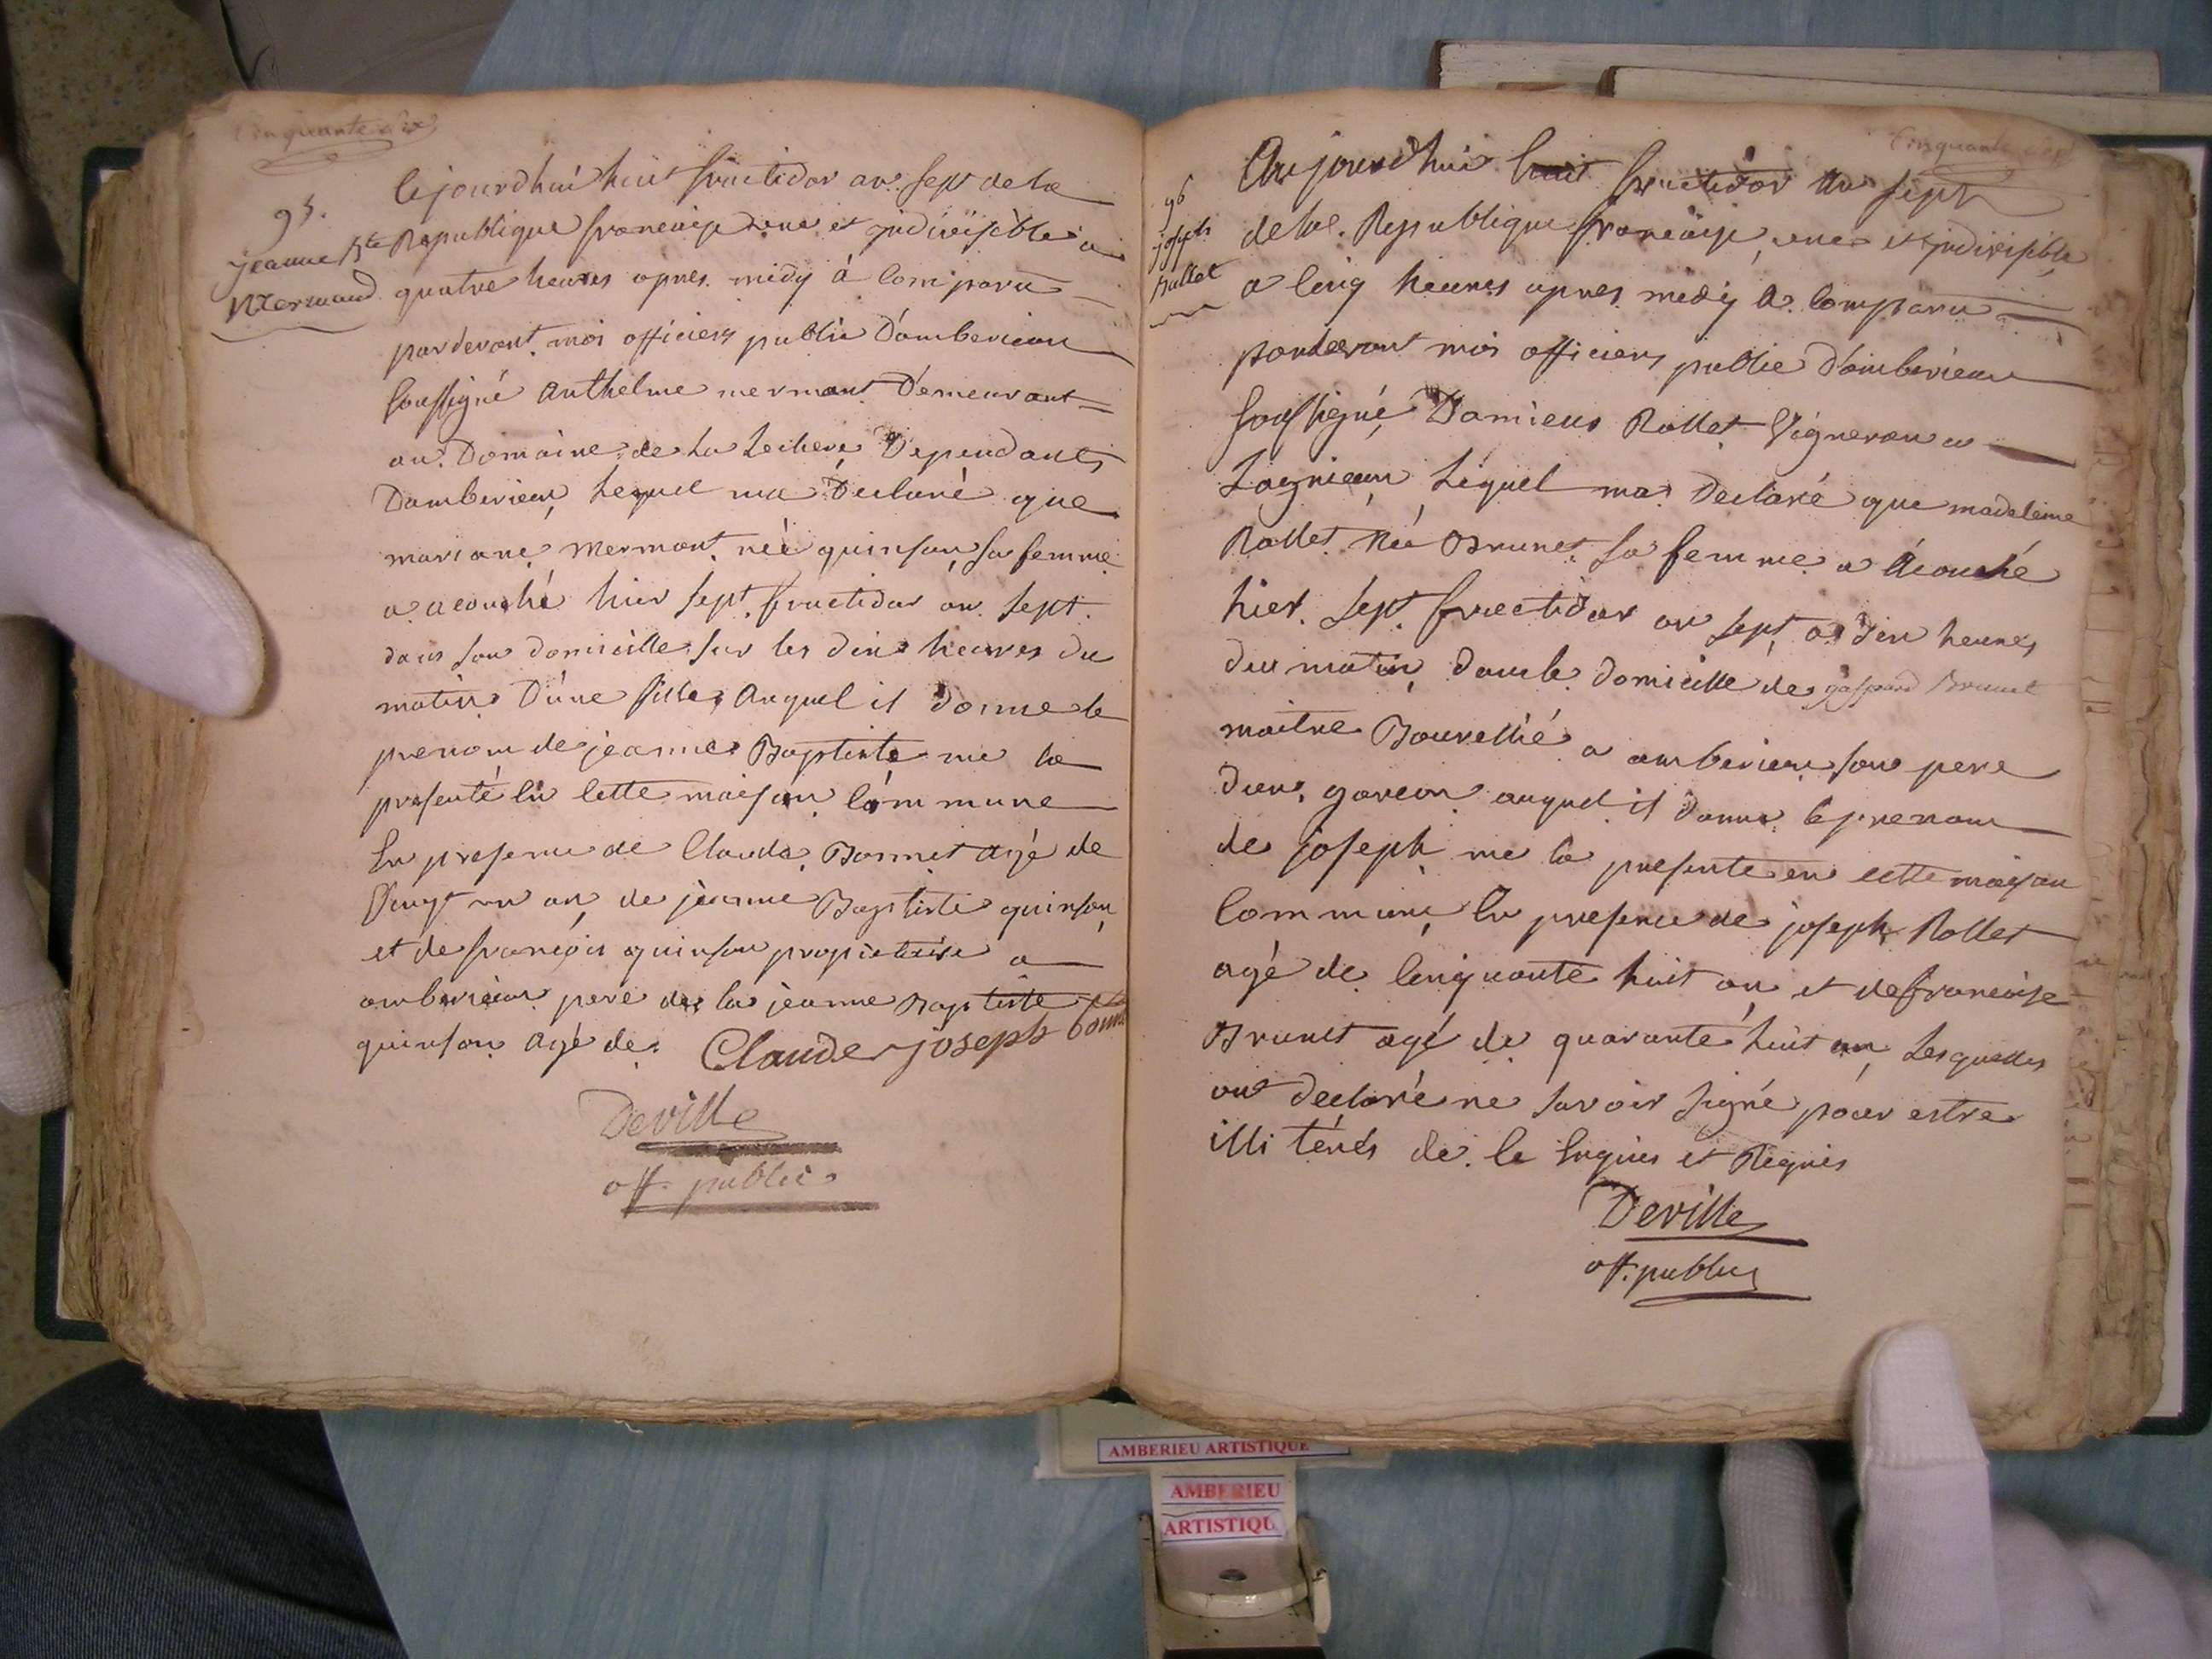 Cinquante six
95.
jeanne Bte
Mermand
Cejourdhui huit fructidor an sept de la
Republique francaise une et indivisible a
quatre heures apres midy à comparu
pardevant moi officiers public D'amberieux
soussigné anthelme mermant Demeurant
au Domaine de La Lechere Dependants
Damberieux, Lequel ma Declaré que
mariane mermant née quinson, sa femme
a acouché hier sept fructidor an sept
dans son domicille sur les dix heures du
matin D'une fille, auquel il donne le
prenom de jeanne Baptiste me la
presenté en cette maison commune
En presence de Claude Bonnet agé de
Vingt un an, de jeanne Baptiste quinson,
et de francois quinson propietaire a
amberieux pere de la jeanne Baptiste
quinson agé de. Claude joseph bonnet
Deville
off. public
Cinquante
96
joseph
Rollet
Aujourdhui huit fructidor an sept
de la Republique francaise, une et indivisible
a cinq heures apres midy a comparu
pardevant moi officiers public d'amberieux
soussigné, Damiens Rollet Vigneron a
Lagnieux, Lequel ma Declaré que madeleine
Rollet née Brunet sa femme a acouché
hier sept fructidor an sept a dix heures
du matin, dans le domicille de gaspard Brunet
maitre Bourellié a amberieux son pere
d'un garcon auquel il donne le prenom
de joseph me la presente en cette maison
commune, En presence de joseph Rollet
agé de cinquante huit an et de francoise
Brunet agé de quarante huit an, Lesquelles
ont declaré ne savoir signé pour estre
illiterés de ce Enquis et Requis
Deville
off. public
AMBERIEU ARTISTIQUE
AMBERIEU
ARTISTIQU